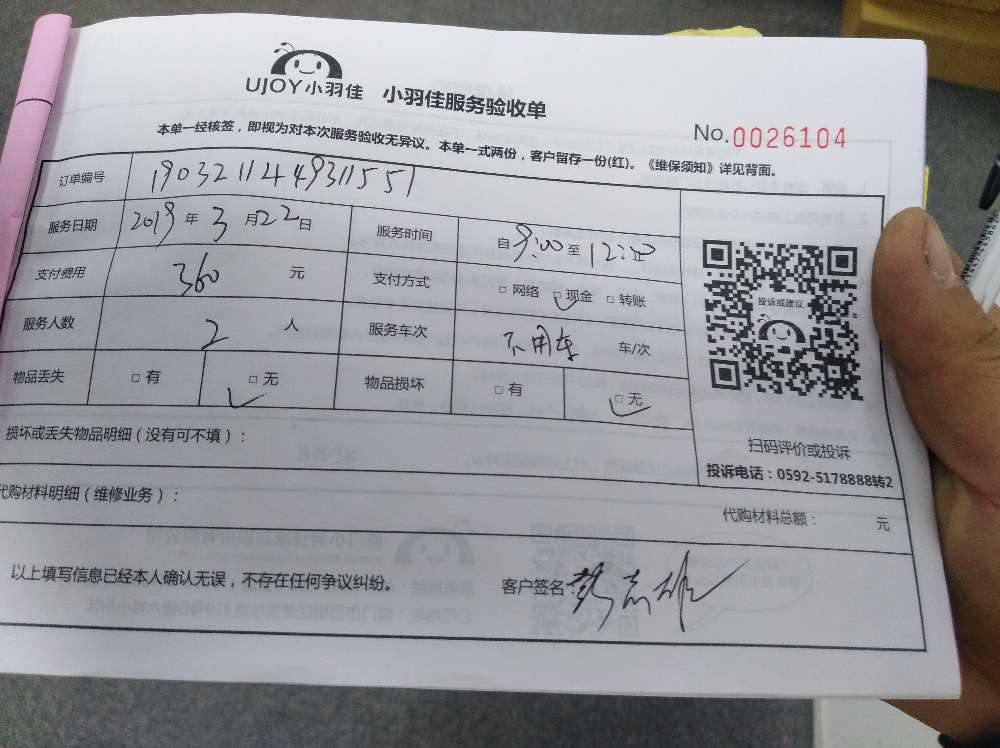 UJOY小羽佳 小羽佳服务验收单
No.0026104
本单一经核签，即视为对本次服务验收无异议。本单一式两份，客户留存一份(红)。《维保须知》详见背面。
订单编号 19032112449311551
服务日期 2019 年 3 月 22 日 服务时间 自 9:00 至 12:00
支付费用 360 元 支付方式 □ 网络 □ 现金 □ 转账
服务人数 2 人 服务车次 不用车 车/次
物品丢失 □ 有 □ 无 物品损坏 □ 有 □ 无
投诉或建议
扫码评价或投诉
投诉电话：0592-5178888转2
损坏或丢失物品明细（没有可不填）：
代购材料明细（维修业务）：
代购材料总额： 元
以上填写信息已经本人确认无误，不存在任何争议纠纷。 客户签名: